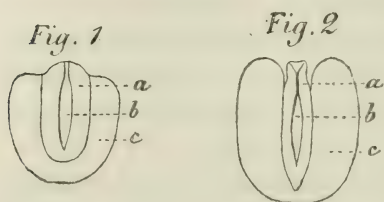 Fig. 1
a
b
c
Fig. 2
a
b
c